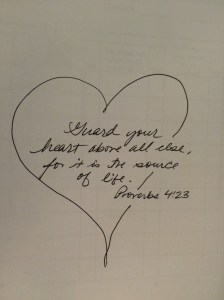 Guard your
heart above all else,
for it is the source
of life.
Proverbs 4:23